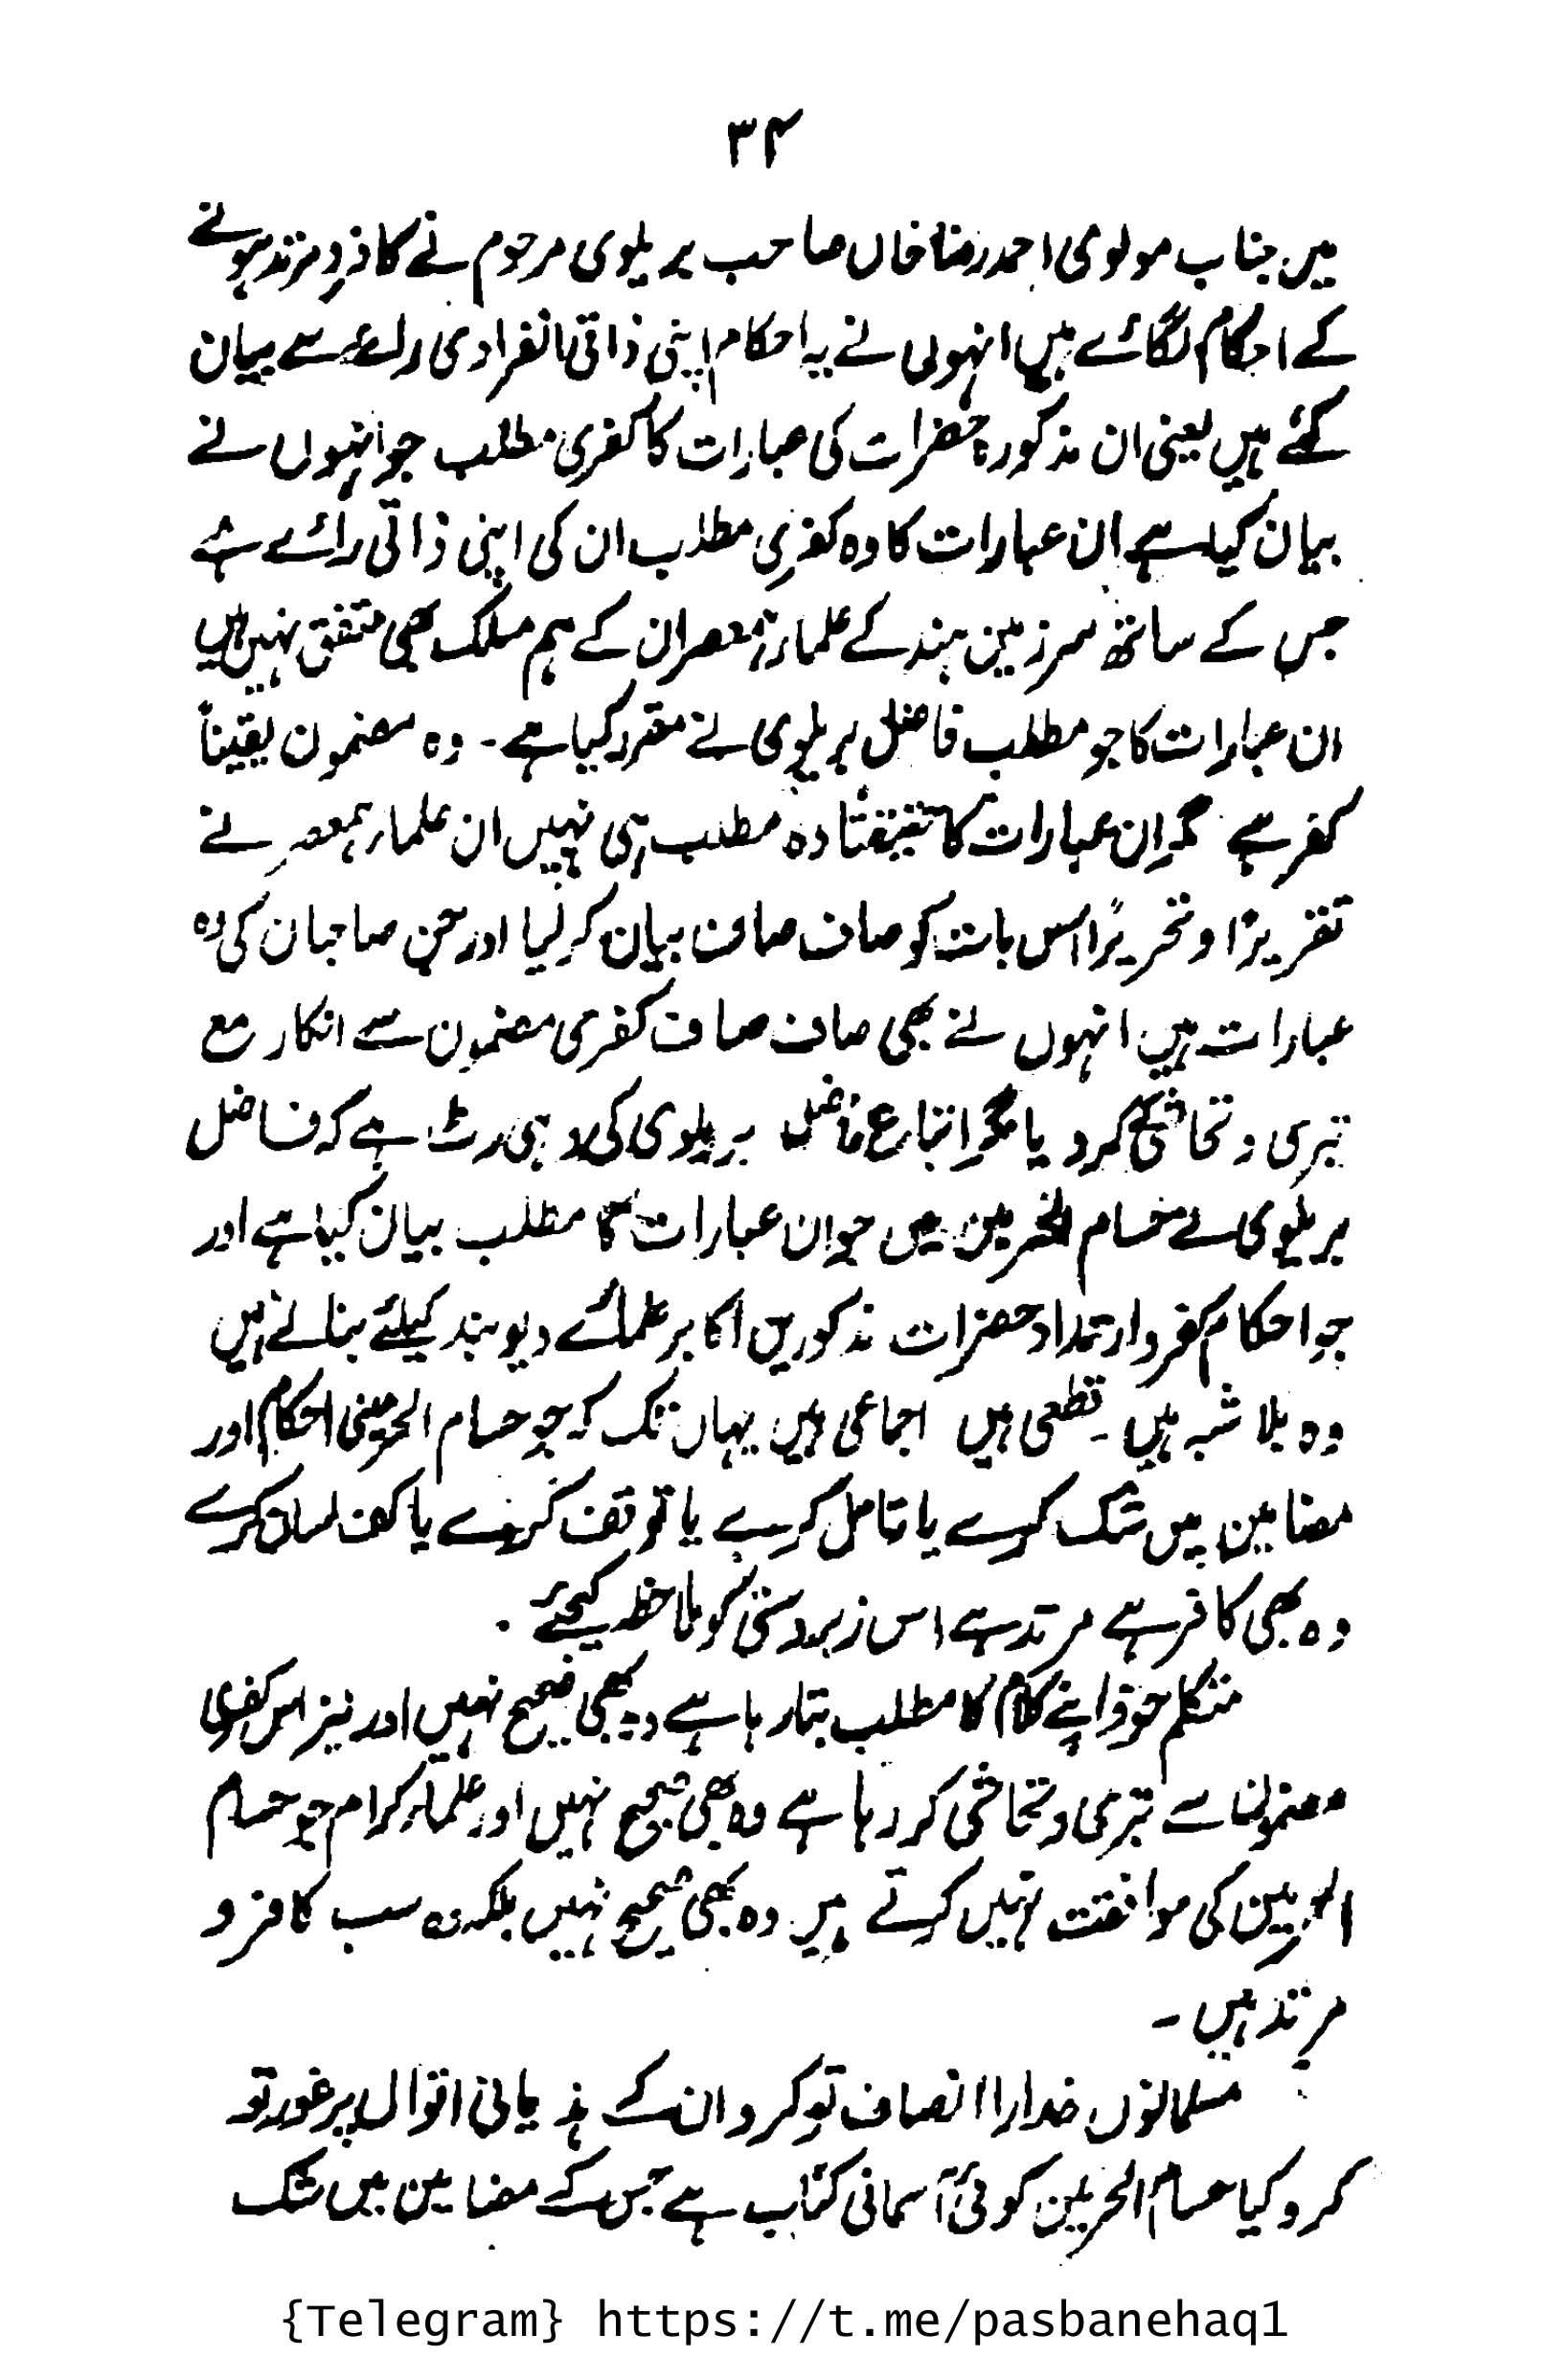 ۳۴
میں جناب مولوی احمد رضا خاں صاحب بریلوی مرحوم نے کافر و مرتد ہونے
کے احکام لگائے ہیں انہوں نے یہ احکام اپنی ذاتی انفرادی رائے سے بیان
کئے ہیں یعنی ان مذکورہ حضرات کی عبارات کا کفری مطلب جو انہوں نے
بیان کیا ہے ان عبارات کا وہ کفری مطلب ان کی اپنی ذاتی رائے ہے
جس کے ساتھ سرزمین ہند کے علماء ہمعصر ان کے ہم مسلک بھی متفق نہیں ہیں
ان عبارات کا جو مطلب فاضل بریلوی نے مقرر کیا ہے۔ وہ مضمون یقیناً
کفر ہے مگر ان عبارات کا حقیقتاً وہ مطلب ہی نہیں ان علماء ہمعصر نے
تقریراً و تحریراً اس بات کو صاف صاف بیان کر لیا اور جن صاحبان کی وہ
عبارات ہیں انہوں نے بھی صاف صاف کفری مضمون سے انکار مع
تبری و تحاشی کر دیا مگر اتباع فاضل بریلوی کی وہی رٹ ہے کہ فاضل
بریلوی نے حسام الحرمین میں جو ان عبارات کا مطلب بیان کیا ہے اور
جو احکام کفر و ارتداد حضرات مذکورین اکابر علمائے دیوبند کیلئے بتائے ہیں
وہ بلا شبہ ہیں۔ قطعی ہیں اجماعی ہیں یہاں تک کہ جو حسام الحرمینی احکام اور
مضامین میں شک کرے یا تامل کرے یا توقف کرے یا کف لسان کرے
وہ بھی کافر ہے مرتد ہے اس زبردستی کو ملاحظہ کیجئے۔
متکلم خود اپنے کلام کا مطلب بتا رہا ہے وہ بھی صحیح نہیں اور نیز اس کفری
مضمون سے تبری و تحاشی کر رہا ہے وہ بھی صحیح نہیں اور علماء کرام جو حسام
الحرمین کی موافقت نہیں کرتے ہیں وہ بھی صحیح نہیں بلکہ وہ سب کافر و
مرتد ہیں۔
مسلمانوں خدارا انصاف تو کرو ان کے ہذیانی اقوال پر غور تو
کرو کیا حسام الحرمین کوئی آسمانی کتاب ہے جس کے مضامین میں شک
{Telegram} https://t.me/pasbanehaq1